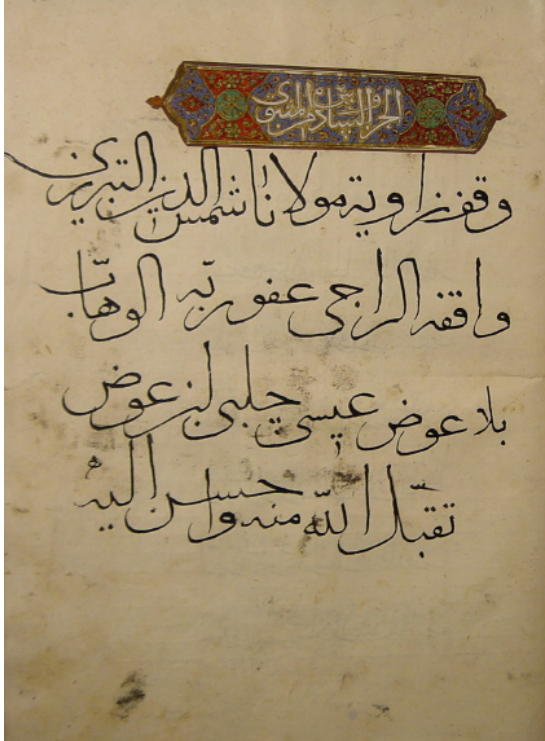 الجزء السادس من المثنوي
وقف زاوية مولانا شمس الدين التبريزي
واقفه الراجي عفو ربّه الوهّاب
بلا عوض عيسى چلبي بن عوض
تقبّل الله منه واحسن اليه